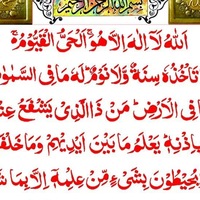 بسم الله الرحمن الرحيم
اَللّٰهُ لَاۤ اِلٰهَ اِلَّا هُوَ ۚ اَلْحَیُّ الْقَیُّوْمُ ۚ
تَاْخُذُهٗ سِنَةٌ وَّلَا نَوْمٌ ؕ لَهٗ مَا فِی السَّمٰو
فِی الْاَرْضِ ؕ مَنْ ذَا الَّذِیْ یَشْفَعُ عِنْ
بِاِذْنِهٖ ؕ یَعْلَمُ مَا بَیْنَ اَیْدِیْهِمْ وَمَا خَلْفَ
یُحِیْطُوْنَ بِشَیْءٍ مِّنْ عِلْمِهٖۤ اِلَّا بِمَا شَ